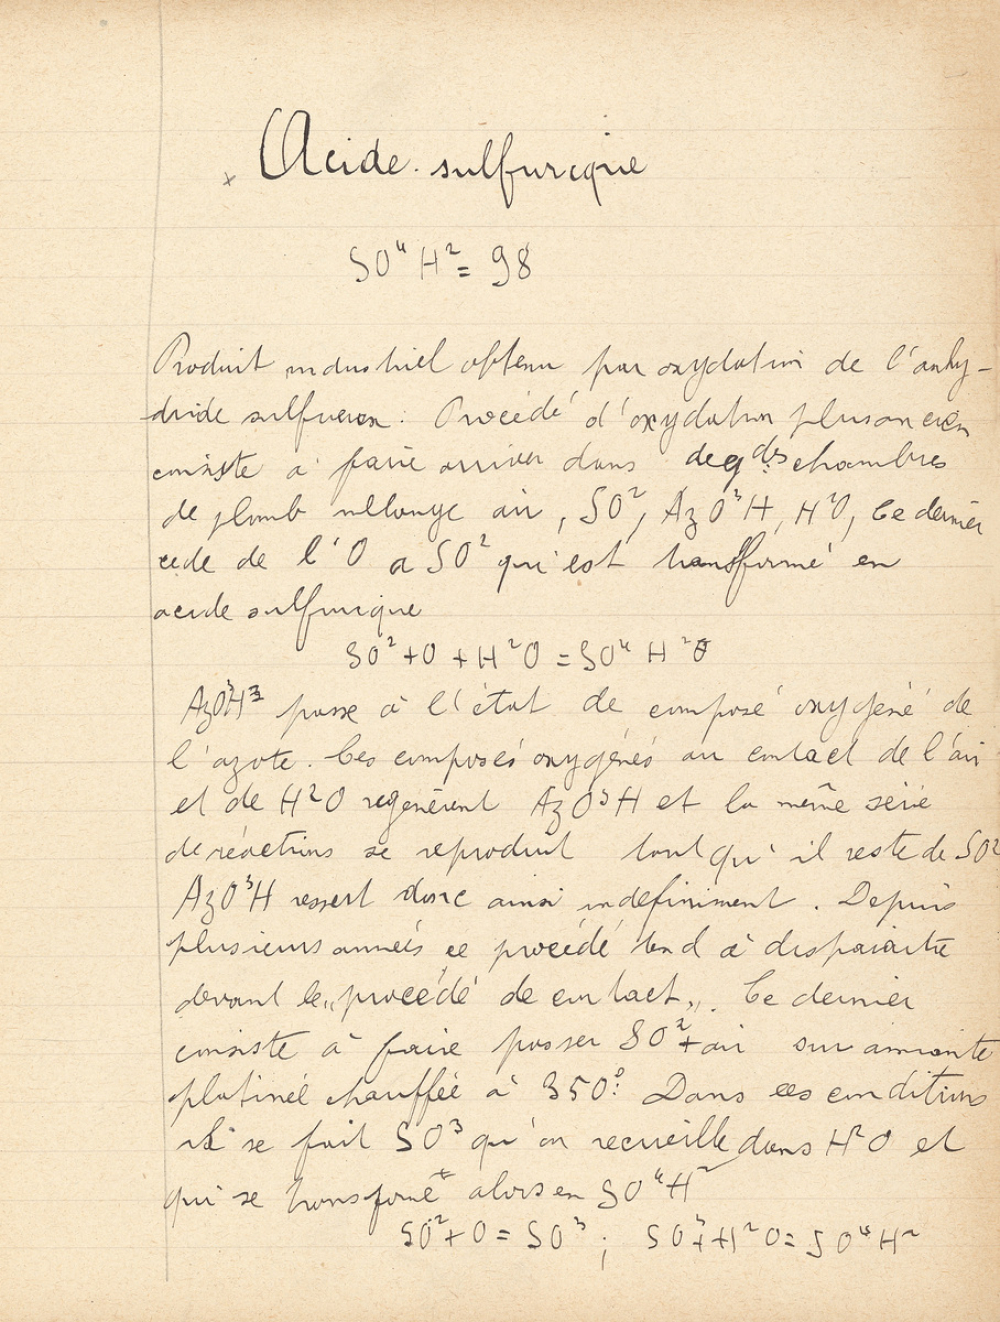 × Acide sulfurique
SO⁴H² = 98
Produit industriel obtenu par oxydation de l'anhy-
dride sulfureux. Procédé d'oxydation plus ancien
consiste à faire arriver dans des chambres
de plomb mélange air, SO², AzO³H, H²O, Ce dernier
cède de l'O a SO² qui est transformé en
acide sulfurique
SO² + O + H²O = SO⁴H²
AzO³H passe à l'état de composé oxygéné de
l'azote. Ces composés oxygénés au contact de l'air
et de H²O regénèrent AzO³H et la même série
de réactions se reproduit tant qu'il reste de SO²
AzO³H ressert donc ainsi indefiniment. Depuis
plusieurs années ce procédé tend à disparaitre
devant le „procédé de contact„. Ce dernier
consiste à faire passer SO² + air sur amiante
platinée chauffée à 350°. Dans ces conditions
il se fait SO³ qu'on recueille dans H²O et
qui se transforme alors en SO⁴H²
SO² + O = SO³ ; SO³ + H²O = SO⁴H²